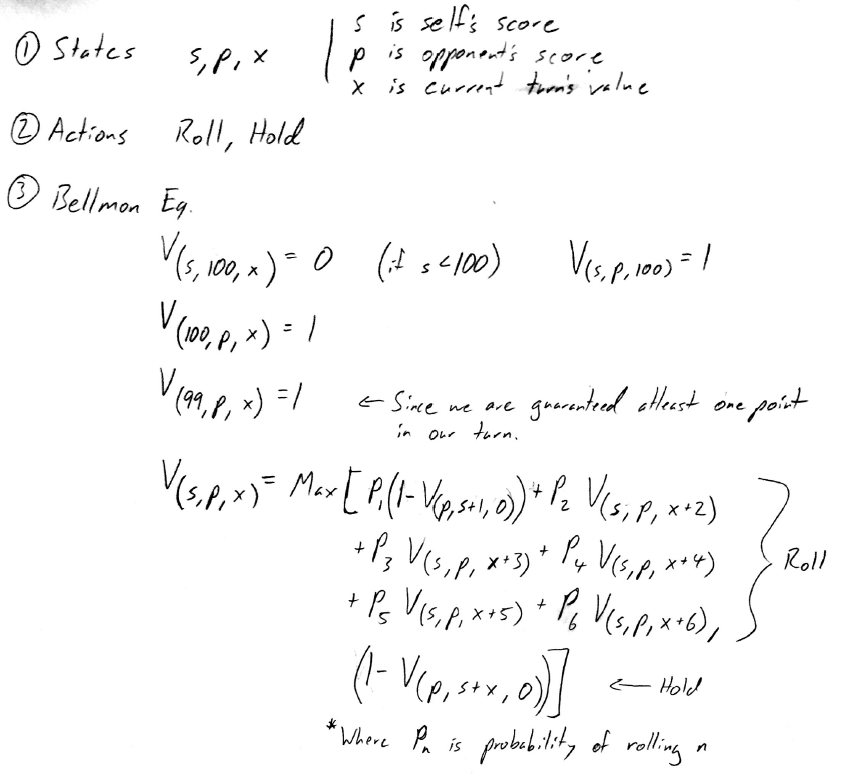 ① States s, p, x | s is self's score
p is opponent's score
x is current turn's value
② Actions Roll, Hold
③ Bellmon Eq.
V(s, 100, x) = 0 (if s < 100) V(s, p, 100) = 1
V(100, p, x) = 1
V(99, p, x) = 1 ← Since we are guaranteed atleast one point
in our turn.
V(s, p, x) = Max [ P₁(1 - V(p, s+1, 0)) + P₂ V(s, p, x+2)
+ P₃ V(s, p, x+3) + P₄ V(s, p, x+4) } Roll
+ P₅ V(s, p, x+5) + P₆ V(s, p, x+6),
(1 - V(p, s+x, 0))] ← Hold
*Where Pₙ is probability of rolling n